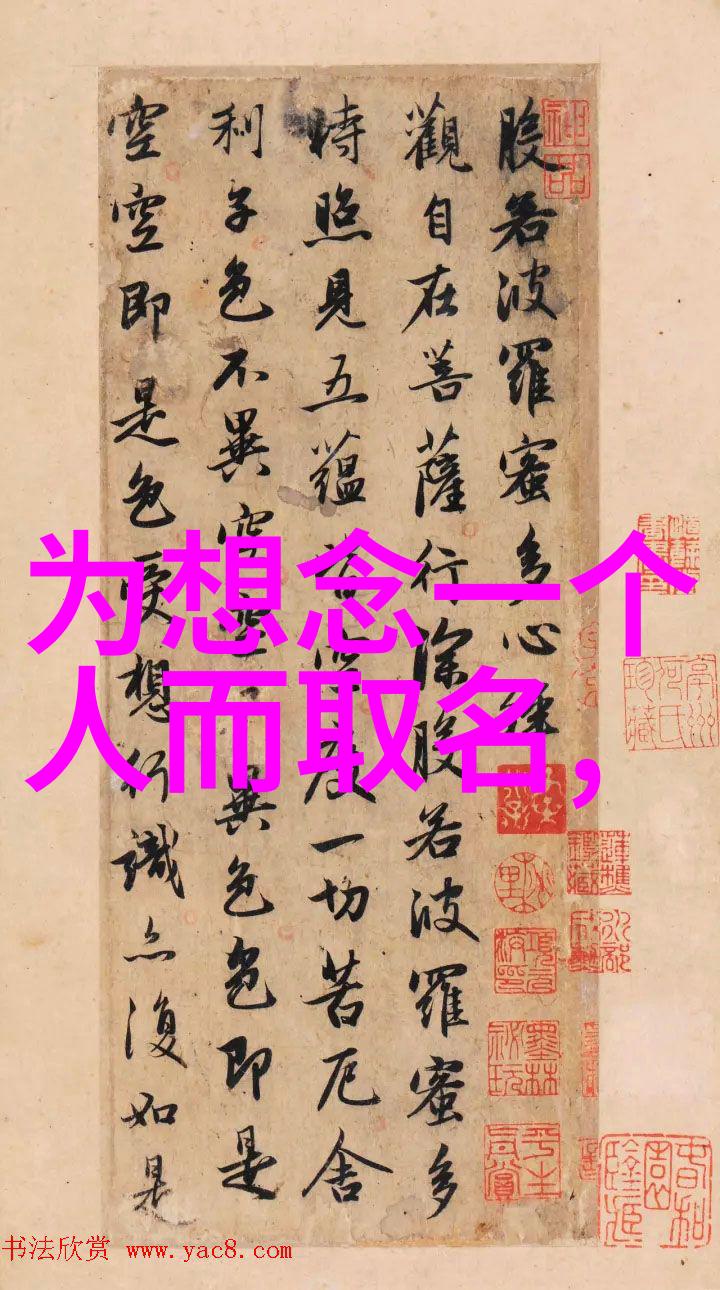 般若波羅蜜多心經
觀自在菩薩行深般若波羅蜜多
時照見五蘊皆空度一切苦厄舍
利子色不異空空異色色即是
空空即是色受想行識亦復如是
为想念一个
人而取名,
神品
墨林秘玩
平生真賞
书法欣赏 www.yac8.com